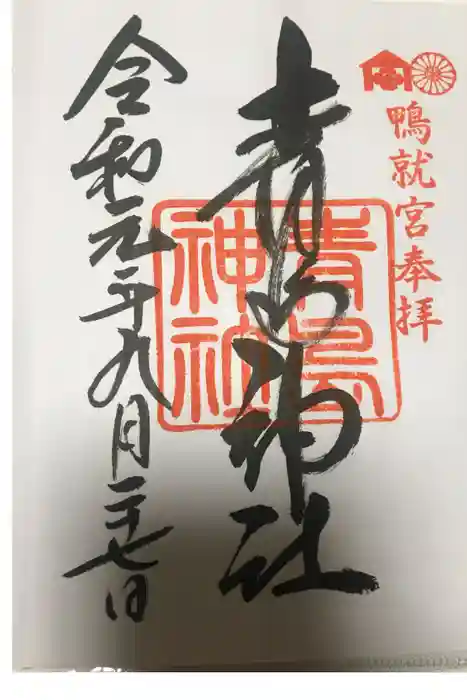 鴨就宮奉拝
青島神社
青島
神社
令和元年九月二十七日